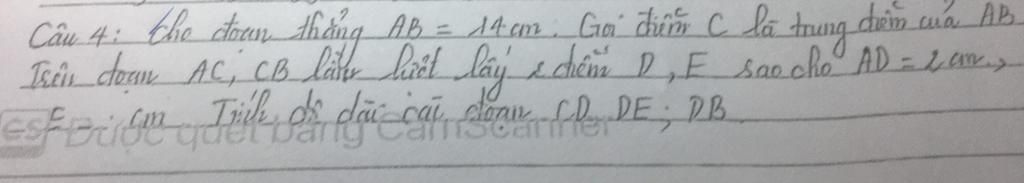 Câu 4: Cho đoạn thẳng AB = 14cm. Gọi điểm C là trung điểm của AB
Trên đoạn AC, CB lần lượt lấy 2 điểm D, E sao cho AD = 2cm,
E cm Tính độ dài các đoạn CD DE; DB
CS Được quét bằng CamScanner